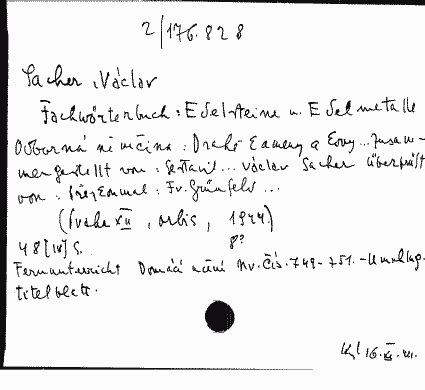 2/176.828
Sacher, Václav
Fachwörterbuch: Edelsteine u. Edelmetalle
Odborná němčina: Drahé kameny a kovy... Zusam-
mengestellt von: Sestavil... Václav Sacher überprüft
von: Přezkoumal: Fr. Grünfeld...
(Praha XII, orbis, 1944)
48 [IV] S. 8?
Fernunterricht Domácí učení Nr. čís. 749-751.-Umschlag-
titelblatt.
16. XI.